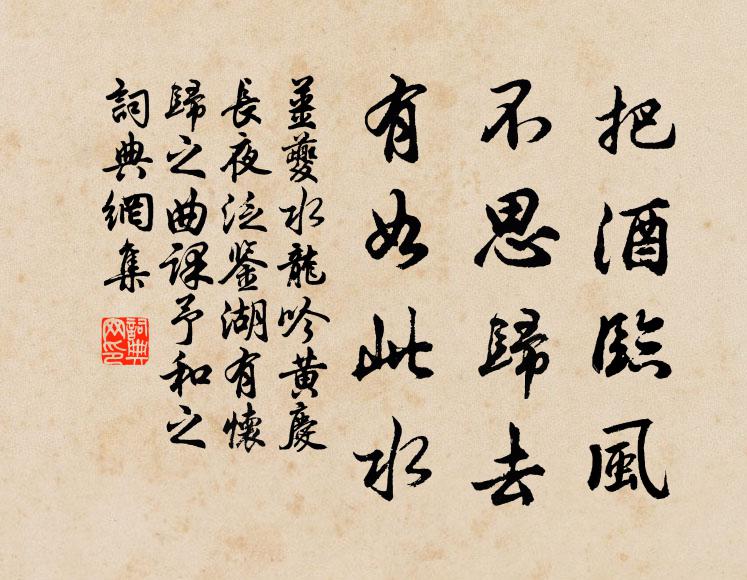 把酒臨風
不思歸去
有如此水
姜夔水龍吟黃慶
長夜泛鉴湖有懷
歸之曲課予和之
詞典網集
詞典
网印